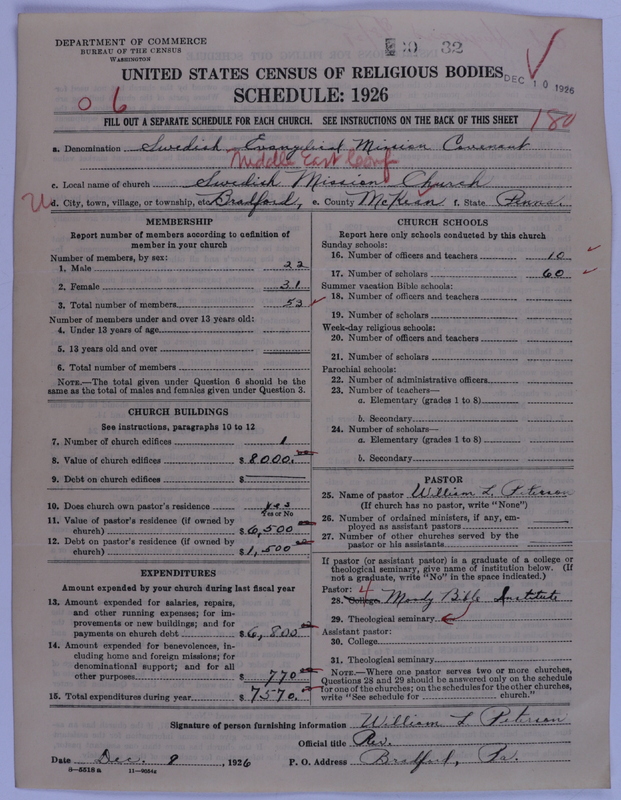 DEPARTMENT OF COMMERCE
BUREAU OF THE CENSUS
WASHINGTON
30 32
UNITED STATES CENSUS OF RELIGIOUS BODIES
DEC 10 1926
SCHEDULE: 1926
0 6
FILL OUT A SEPARATE SCHEDULE FOR EACH CHURCH. SEE INSTRUCTIONS ON THE BACK OF THIS SHEET
180
a. Denomination Swedish Evangelical Mission Covenant
Middle East Conf
c. Local name of church Swedish Mission Church
d. City, town, village, or township, etc. Bradford, e. County McKean f. State Penna.
MEMBERSHIP
Report number of members according to definition of
member in your church
Number of members, by sex:
1. Male 22
2. Female 31
3. Total number of members 53
Number of members under and over 13 years old:
4. Under 13 years of age
5. 13 years old and over
6. Total number of members
NOTE.—The total given under Question 6 should be the
same as the total of males and females given under Question 3.
CHURCH BUILDINGS
See instructions, paragraphs 10 to 12
7. Number of church edifices 1
8. Value of church edifices $ 8000.
9. Debt on church edifices $
10. Does church own pastor's residence yes
Yes or No
11. Value of pastor's residence (if owned by
church) $ 6,500
12. Debt on pastor's residence (if owned by
church) $ 1,500
EXPENDITURES
Amount expended by your church during last fiscal year
13. Amount expended for salaries, repairs,
and other running expenses; for im-
provements or new buildings; and for
payments on church debt $ 6,800
14. Amount expended for benevolences, in-
cluding home and foreign missions; for
denominational support; and for all
other purposes $ 770
15. Total expenditures during year $ 7570.
CHURCH SCHOOLS
Report here only schools conducted by this church
Sunday schools:
16. Number of officers and teachers 10
17. Number of scholars 60
Summer vacation Bible schools:
18. Number of officers and teachers
19. Number of scholars
Week-day religious schools:
20. Number of officers and teachers
21. Number of scholars
Parochial schools:
22. Number of administrative officers
23. Number of teachers—
a. Elementary (grades 1 to 8)
b. Secondary
24. Number of scholars—
a. Elementary (grades 1 to 8)
b. Secondary
PASTOR
25. Name of pastor William L. Peterson
(If church has no pastor, write "None")
26. Number of ordained ministers, if any, em-
ployed as assistant pastors
27. Number of other churches served by the
pastor or his assistants
If pastor (or assistant pastor) is a graduate of a college or
theological seminary, give name of institution below. (If
not a graduate, write "No" in the space indicated.)
Pastor: 4
28. College Moody Bible Institute
29. Theological seminary
Assistant pastor:
30. College
31. Theological seminary
NOTE.—Where one pastor serves two or more churches,
Questions 28 and 29 should be answered only on the schedule
for one of the churches; on the schedules for the other churches,
write "See schedule for church."
Signature of person furnishing information William L Peterson
Official title Rev.
Date Dec. 8, 1926 P. O. Address Bradford, Pa.
8—5518a 11—9084a